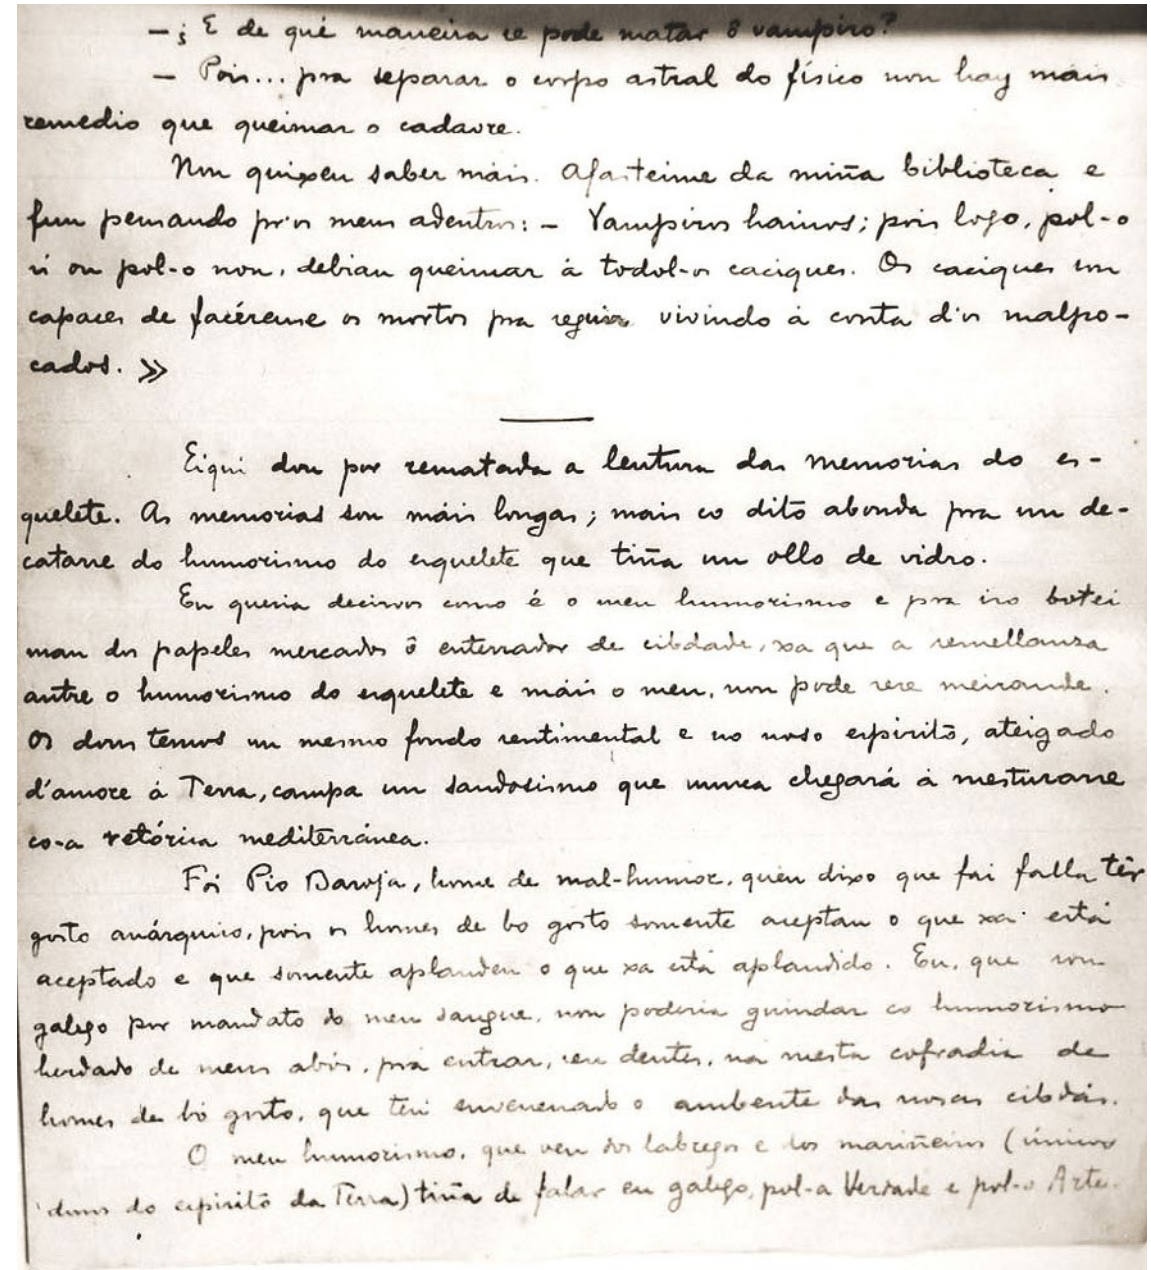 — ¿E de qué maneira se pode matar ô vampiro?
— Pois... pra separar o corpo astral do físico non hay máis
remedio que queimar o cadavre.
Non quixen saber máis. Afasteime da miña biblioteca e
fun pensando pr'os meus adentros: — Vampiros hainos; pois logo, pol-o
si ou pol-o non, debían queimar á todol-os caciques. Os caciques son
capaces de facérense os mortos pra seguir vivindo á conta d'os malpo-
cados. »
Eiquí dou por rematada a leutura das memorias do es-
quelete. As memorias son máis longas; mais co dito abonda pra un de-
catarse do humorismo do esquelete que tiña un ollo de vidro.
Eu quería decirvos como é o meu humorismo e pra iso botei
man dos papeles mercados ô enterrador de cibdade, xa que a semellanza
antre o humorismo do esquelete e máis o meu, non pode sere meirande.
Os dous temos un mesmo fondo sentimental e no noso espirito, ateigado
d'amore á Terra, campa un saudosismo que nunca chegará á mesturarse
co-a retórica mediterránea.
Foi Pio Baroja, home de mal-humor, quén dixo que fai falla têr
gosto anárquico, pois os homes de bo gosto somente aceptan o que xa está
aceptado e que somente aplauden o que xa está aplaudido. Eu, que son
galego por mandato do meu sangue, non podería guindar co humorismo
herdado de meus abós, prá entrar, sen dentes, na mesta cofradía de
homes de bó gosto, que ten envenenado o ambente das nosas cibdás.
O meu humorismo, que ven dos labregos e dos mariñeiros (únicos
donos do espirito da Terra) tiña de falar en galego, pol-a Verdade e pol-o Arte.